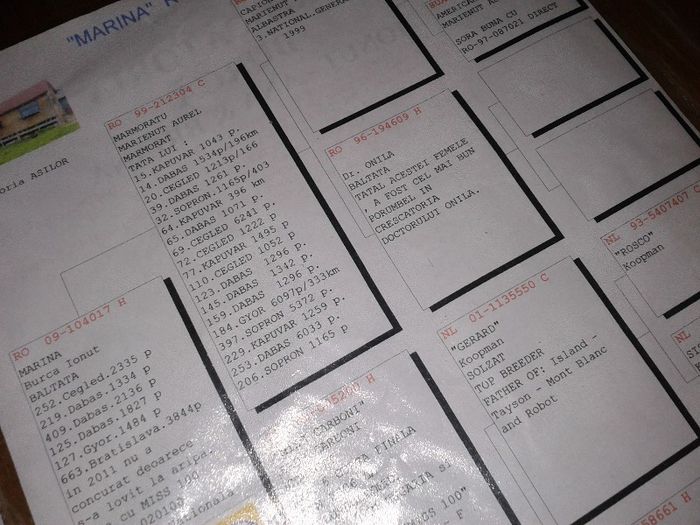 "MARINA"
oria ASILOR
RO 09-104017 H
MARINA
Burca Ionut
BALTATA
252.Cegled.2335 p
219.Dabas.1334 p
409.Dabas.2136 p
125.Dabas.1827 p
127.Gyor.1484 p
663.Bratislava.3844p
in 2011 nu a
concurat deoarece
s-a lovit la aripa.
cu MISS 100
RO 99-212304 C
MARMORATU
MARIENUT AUREL
MARMORAT
TATA LUI :
15.KAPUVAR 1043 p.
14.DABAS 1534p/196km
20.CEGLED 1213p/166
39.DABAS 1261 p.
32.SOPRON.1165p/403
64.KAPUVAR 396 km
65.DABAS 1071 p.
69.CEGLED 6241 p.
72.CEGLED 1222 p
77.KAPUVAR 1495 p
110.CEGLED 1052 p
123.DABAS 1296 p.
145.DABAS 1342 p.
159.DABAS 1296 p.
184.GYOR 6097p/333km
397.SOPRON 5372 p.
229.KAPUVAR 1259 p.
253.DABAS 6033 p.
206.SOPRON 1165 p
H
CARBONI"
FINALA
SI
100"
F
MARIENUT
ALBASTRA
3.NATIONAL.GENERAL
1999
RO 96-194609 H
Dr. ONILA
BALTATA
TATAL ACESTEI FEMELE
A FOST CEL MAI BUN
PORUMBEL IN
CRESCATORIA
DOCTORULUI ONILA.
NL 01-1135550 C
"GERARD"
Koopman
SOLZAT
TOP BREEDER
FATHER OF: Island -
Tayson - Mont Blanc
and Robot
MARIENUT
SORA BUNA CU
RO-97-087021 DIRECT
NL 93-5407407 C
"ROSCO"
Koopman
NL